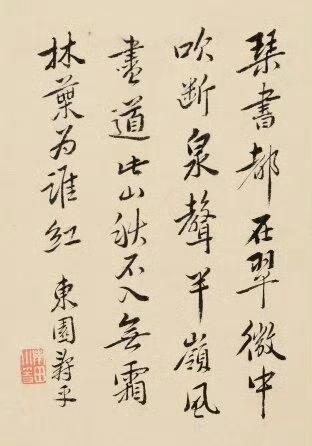 琴書都在翠微中
吹断泉聲半嶺風
盡道此山秋不入無霜
林葉为誰紅 東園壽平